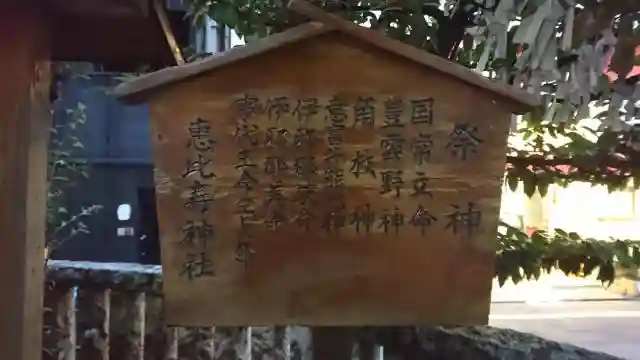 祭神
国常立命
豊雲野神
角杙神
意富斗能神
伊邪那岐命
伊邪那美命
事代主命
恵比寿神社